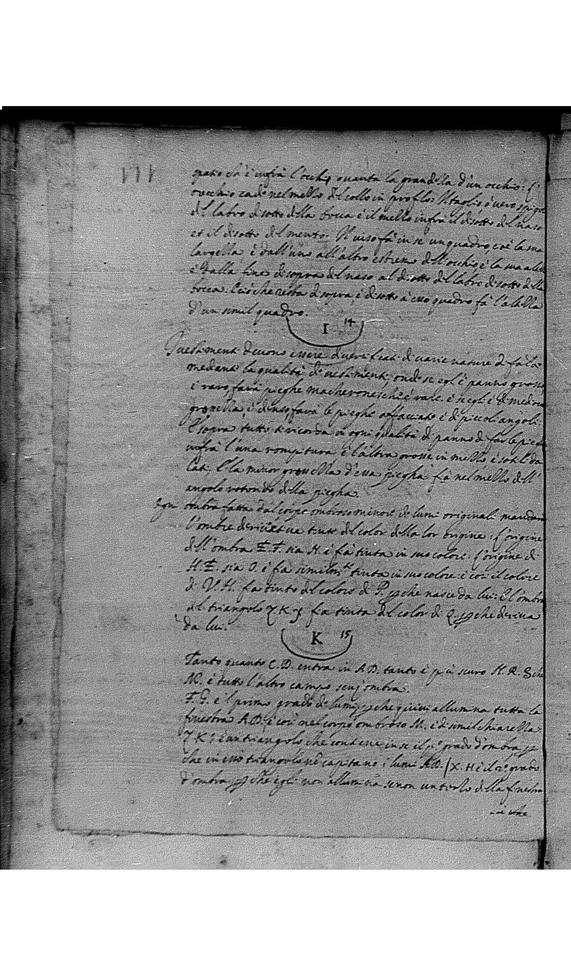 spatio ch'è infrà l'occhi, quanto la grandezza d'un occhio: l'
orecchio cade nel mezzo del collo in profilo: Il taglio è vero spigo
del labro di sotto della bocca è il mezzo infrà il disotto del naso
et il disotto del mento. Il viso fà in se un quadro, cioè la sua
largezza è dall'uno all'altro estremo dell'occhi, è la sua altezza
è dalla fine di sopra del naso al disotto del labro di sotto della
bocca. E ciò che resta di sopra, è di sotto a esso quadro fà l'altezza
d'un simil quadro.
I 14
I vestimenti devono essere diversificati di varie nature di falde
medianti la qualità di vestimenti, onde se egl'è panno grosso
è raro farà pieghe macheronesche è rare, è s'egli è di mediocre
grossezza è denso farà le pieghe affaciate è di piccoli angoli.
E sopra tutto ti ricorda in ogni qualità di panno di far le pieghe
infrà l'una rompitura è l'altra grosse in mezzo è sottili da
lati. E la minor grossezza d'essa piegha fà nel mezzo dell'
angolo rotondo della piegha.
Ogni ombra fatta dal corpo ombroso minore de lumi originali manda
l'ombre derivative tinte del color della lor origine. L'origine
dell'ombra E.F. sia H. è fà tinta in suo colore. L'origine di
H.E. sia O. è fà similmte tinta in suo colore è così il colore
di V.H. fà tinto del colore di P. perche nasce da lui: E l'ombra
del triangolo Z K Y fà tinta del color di Q. perche deriva
da lui.
K 15
Tanto quanto C.D. entra in A.D. tanto è più scuro N.R. che
M. è tutto l'altro campo senz'ombra.
F.G. è il primo grado de lumi, perche quivi allumina tutta la
finestra A.D. è così nel corpo ombroso M. è di simil chiarezza
Z K Y è un triangolo che contiene in se il po grado d'ombra per
che in esso triangolo nè capitano i lumi A.D. X.H è il 2o grado
d'ombra, perche egli non allumina se non un terzo della finestra